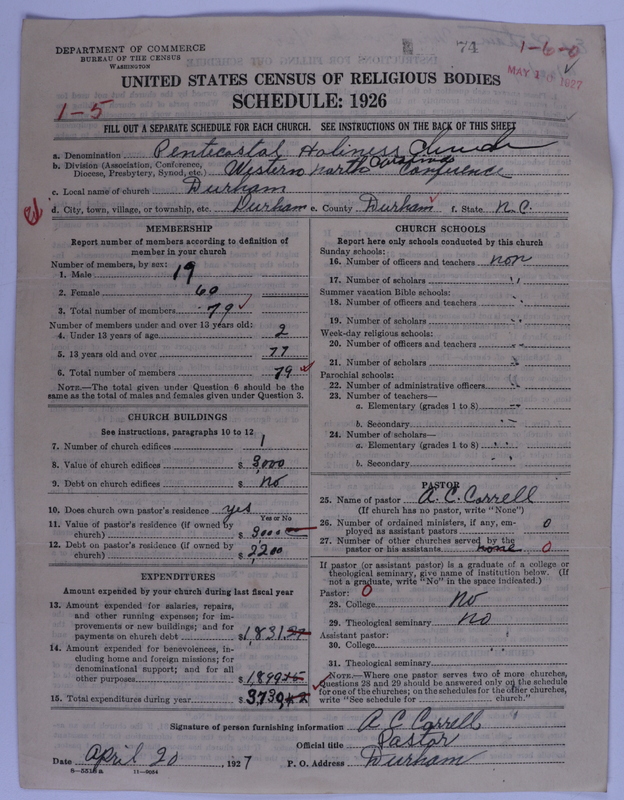 DEPARTMENT OF COMMERCE
BUREAU OF THE CENSUS
WASHINGTON
74 1-6-0
MAY 1927
UNITED STATES CENSUS OF RELIGIOUS BODIES
SCHEDULE: 1926
1-5
FILL OUT A SEPARATE SCHEDULE FOR EACH CHURCH. SEE INSTRUCTIONS ON THE BACK OF THIS SHEET
a. Denomination Pentecostal Holiness Church
b. Division (Association, Conference, Diocese, Presbytery, Synod, etc.) Western North Carolina Conference
c. Local name of church Durham
d. City, town, village, or township, etc. Durham e. County Durham f. State N.C.
MEMBERSHIP
Report number of members according to definition of
member in your church
Number of members, by sex:
1. Male 19
2. Female 60
3. Total number of members 79
Number of members under and over 13 years old:
4. Under 13 years of age 2
5. 13 years old and over 77
6. Total number of members 79
NOTE.—The total given under Question 6 should be the
same as the total of males and females given under Question 3.
CHURCH BUILDINGS
See instructions, paragraphs 10 to 12
7. Number of church edifices 1
8. Value of church edifices $ 3,000
9. Debt on church edifices $ no
10. Does church own pastor's residence yes
Yes or No
11. Value of pastor's residence (if owned by
church) $ 3000
12. Debt on pastor's residence (if owned by
church) $ 2200
EXPENDITURES
Amount expended by your church during last fiscal year
13. Amount expended for salaries, repairs,
and other running expenses; for im-
provements or new buildings; and for
payments on church debt $ 1,831.27
14. Amount expended for benevolences, in-
cluding home and foreign missions; for
denominational support; and for all
other purposes $ 1,899.15
15. Total expenditures during year $ 3,730.42
CHURCH SCHOOLS
Report here only schools conducted by this church
Sunday schools:
16. Number of officers and teachers non
17. Number of scholars "
Summer vacation Bible schools:
18. Number of officers and teachers "
19. Number of scholars "
Week-day religious schools:
20. Number of officers and teachers "
21. Number of scholars "
Parochial schools:
22. Number of administrative officers "
23. Number of teachers—
a. Elementary (grades 1 to 8) "
b. Secondary "
24. Number of scholars—
a. Elementary (grades 1 to 8) "
b. Secondary "
PASTOR
25. Name of pastor A. C. Correll
(If church has no pastor, write "None")
26. Number of ordained ministers, if any, em-
ployed as assistant pastors 0
27. Number of other churches served by the
pastor or his assistants none 0
If pastor (or assistant pastor) is a graduate of a college or
theological seminary, give name of institution below. (If
not a graduate, write "No" in the space indicated.)
Pastor: 0
28. College No
29. Theological seminary No
Assistant pastor:
30. College "
31. Theological seminary
NOTE.—Where one pastor serves two or more churches,
Questions 28 and 29 should be answered only on the schedule
for one of the churches; on the schedules for the other churches,
write "See schedule for church."
Signature of person furnishing information A. C. Correll
Official title Pastor
Date April 20, 1927 P. O. Address Durham
8-5518 a 11-9084